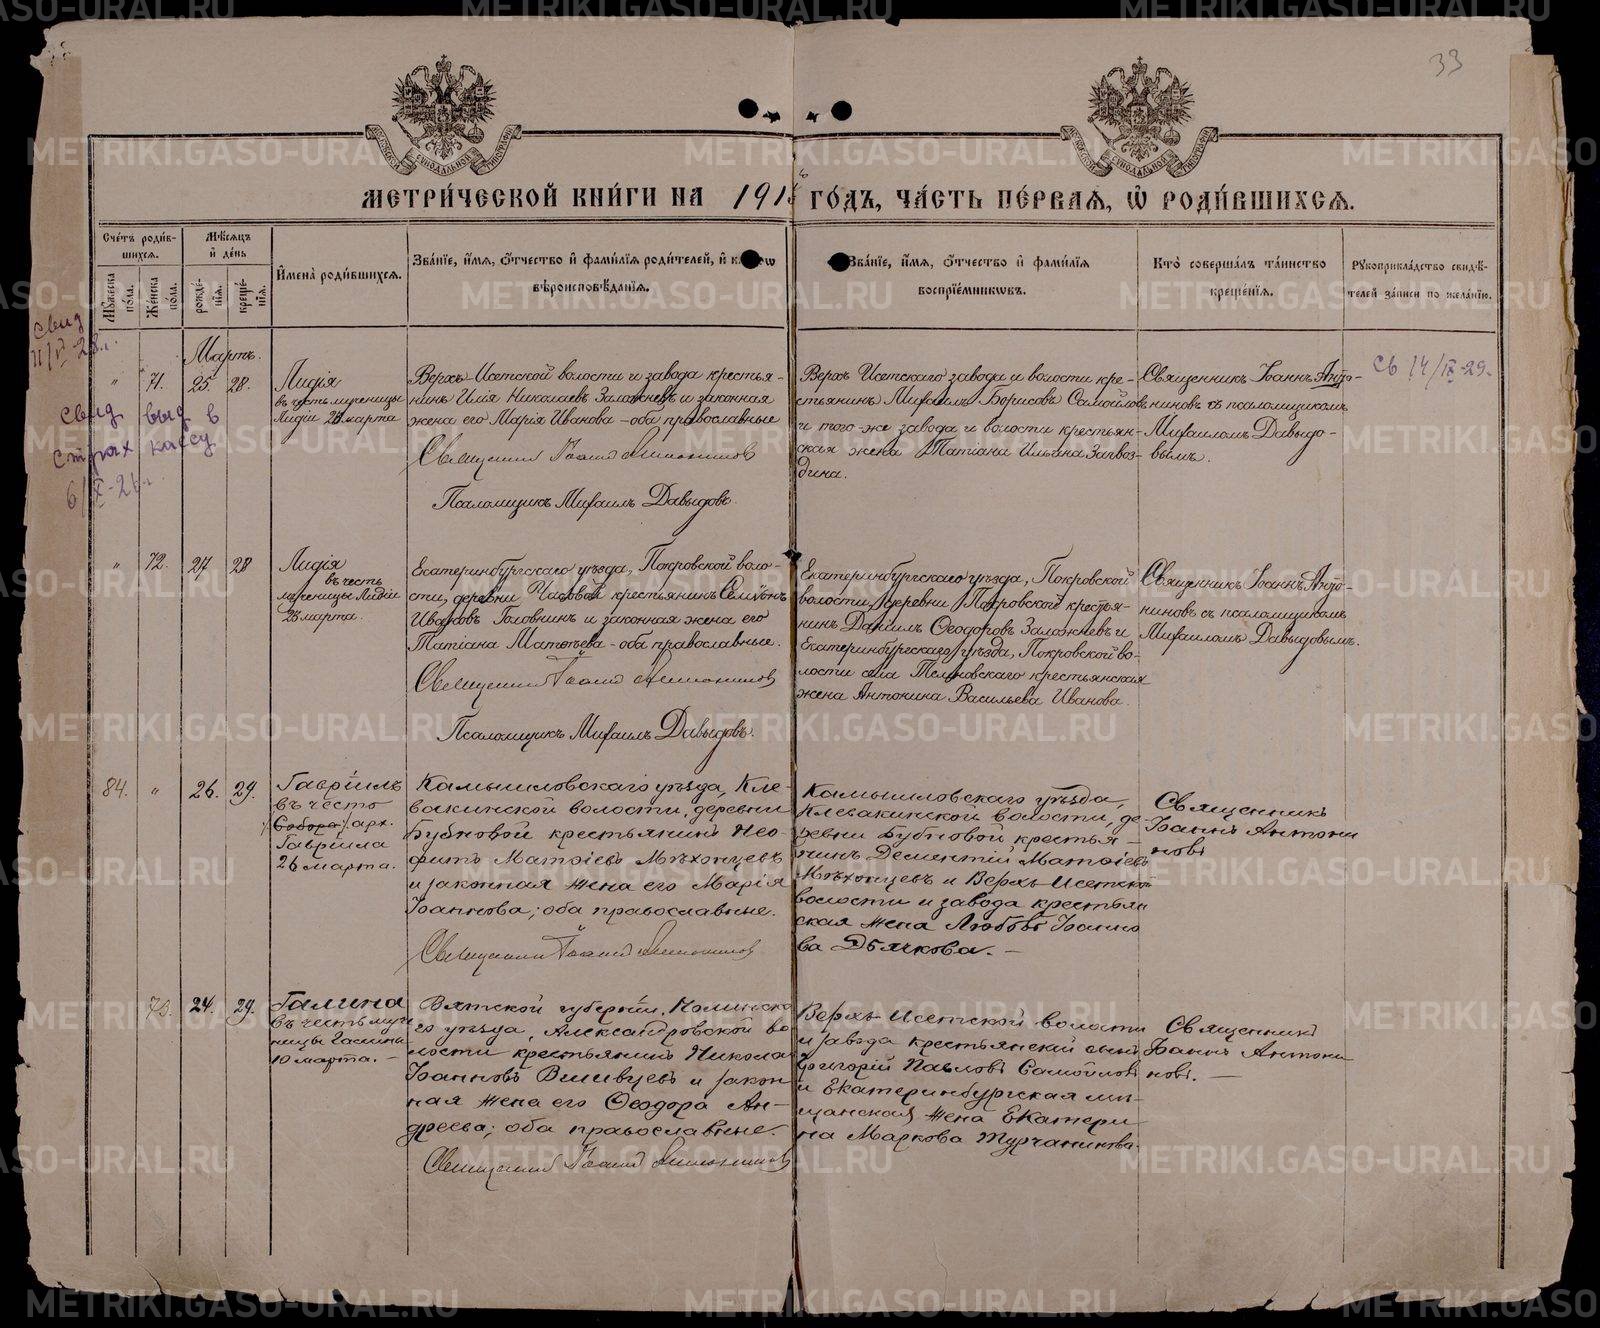 33
МЕТРИ́ЧЕСКОЙ КНИ́ГИ НА 191 ГО́ДЪ, ЧА́СТЬ ПЕ́РВАѦ, Ѡ҆ РОДИ́ВШИХСѦ.
Сче́тъ роди́в-
шихсѧ.
Мꙋжеска по́ла.
Же́нска по́ла.
Мѣ́сѧцъ
и҆ де́нь
рожде́-
нїѧ.
креще́-
нїѧ.
И҆мена̀ роди́вшихсѧ.
Зва́нїе, и҆́мѧ, ѻ҆́тчество и҆ фами́лїѧ роди́телей, и҆
вѣроисповѣ́данїѧ.
Зва́нїе, и҆́мѧ, ѻ҆́тчество и҆ фами́лїѧ
воспрїе́мникѡвъ.
Кто̀ соверша́лъ та́инство
креще́нїѧ.
Рꙋкоприкла́дство свидѣ́-
телей за́писи по жела́нїю.
свид
Мартъ.
" 71. 25 28.
Лидія
въ честь мученицы
Лидіи 23 марта
Верхъ-Исетской волости и завода крестья-
нинъ Илія Николаевъ и законная
жена его Марія Иванова - оба православные
Священникъ Іоаннъ Антониновъ
Псаломщикъ Михаилъ Давыдовъ.
Верхъ Исетскаго завода и волости кре-
стьянинъ Михаилъ Борисовъ Самойловъ
и того-же завода и волости крестьян-
ская жена Татіана Ильина Загвоз-
дина.
Священникъ Іоаннъ Анто-
ниновъ съ псаломщикомъ
Михаиломъ Давыдо-
вымъ.
Св 14/IX-29.
свид выд в
страх кассу
" 72. 27 28
Лидія
въ честь
мученицы Лидіи
23 марта.
Екатеринбургскаго уѣзда, Покровской воло-
сти, деревни Часовой крестьянинъ Семіонъ
Ивановъ Головнинъ и законная жена его
Татіана Матѳеева - оба православные.
Священникъ Іоаннъ Антониновъ
Псаломщикъ Михаилъ Давыдовъ.
Екатеринбургскаго уѣзда, Покровской
волости, деревни Покровской крестья-
нинъ Даніилъ Ѳеодоровъ Заложневъ и
Екатеринбургскаго уѣзда, Покровской во-
лости села крестьянская
жена Антонина Васильева Иванова.
Священникъ Іоаннъ Анто-
ниновъ съ псаломщикомъ
Михаиломъ Давыдовымъ.
84. " 26. 29.
Гавріилъ
въ честь
Собора арх.
Гавріила
26 марта.
Камышловскаго уѣзда, Кле-
вакинской волости, деревни
Бубновой крестьянинъ Нео-
фитъ Матѳіевъ Мѣхонцевъ
и законная жена его Марія
Іоаннова; оба православные.
Священникъ Іоаннъ Антониновъ
Камышловскаго уѣзда,
Клевакинской волости, де-
ревни Бубновой крестья-
нинъ Дементій Матѳіевъ
Мѣхонцевъ и Верхъ-Исетской
волости и завода крестьян
ская жена Любовь Іоанно
ва Дьячкова. —
Священникъ
Іоаннъ Антони
новъ
73. 24. 29.
Галина
въ честь муче
ницы Галины
10 марта. —
Вятской губерніи, Нолинска
го уѣзда, Александровской во
лости крестьянинъ Никола
Іоанновъ и закон
ная жена его Ѳеодора Ан-
дреева; оба православные.
Священникъ Іоаннъ Антониновъ
Верхъ-Исетской волости
и завода крестьянскій сынъ
Григорій Павловъ Самойловъ
и Екатеринбургская мѣ-
щанская жена Екатери
на Маркова Турчанинова.
Священникъ
Іоаннъ Антони
новъ. —
METRIKI.GASO-URAL.RU